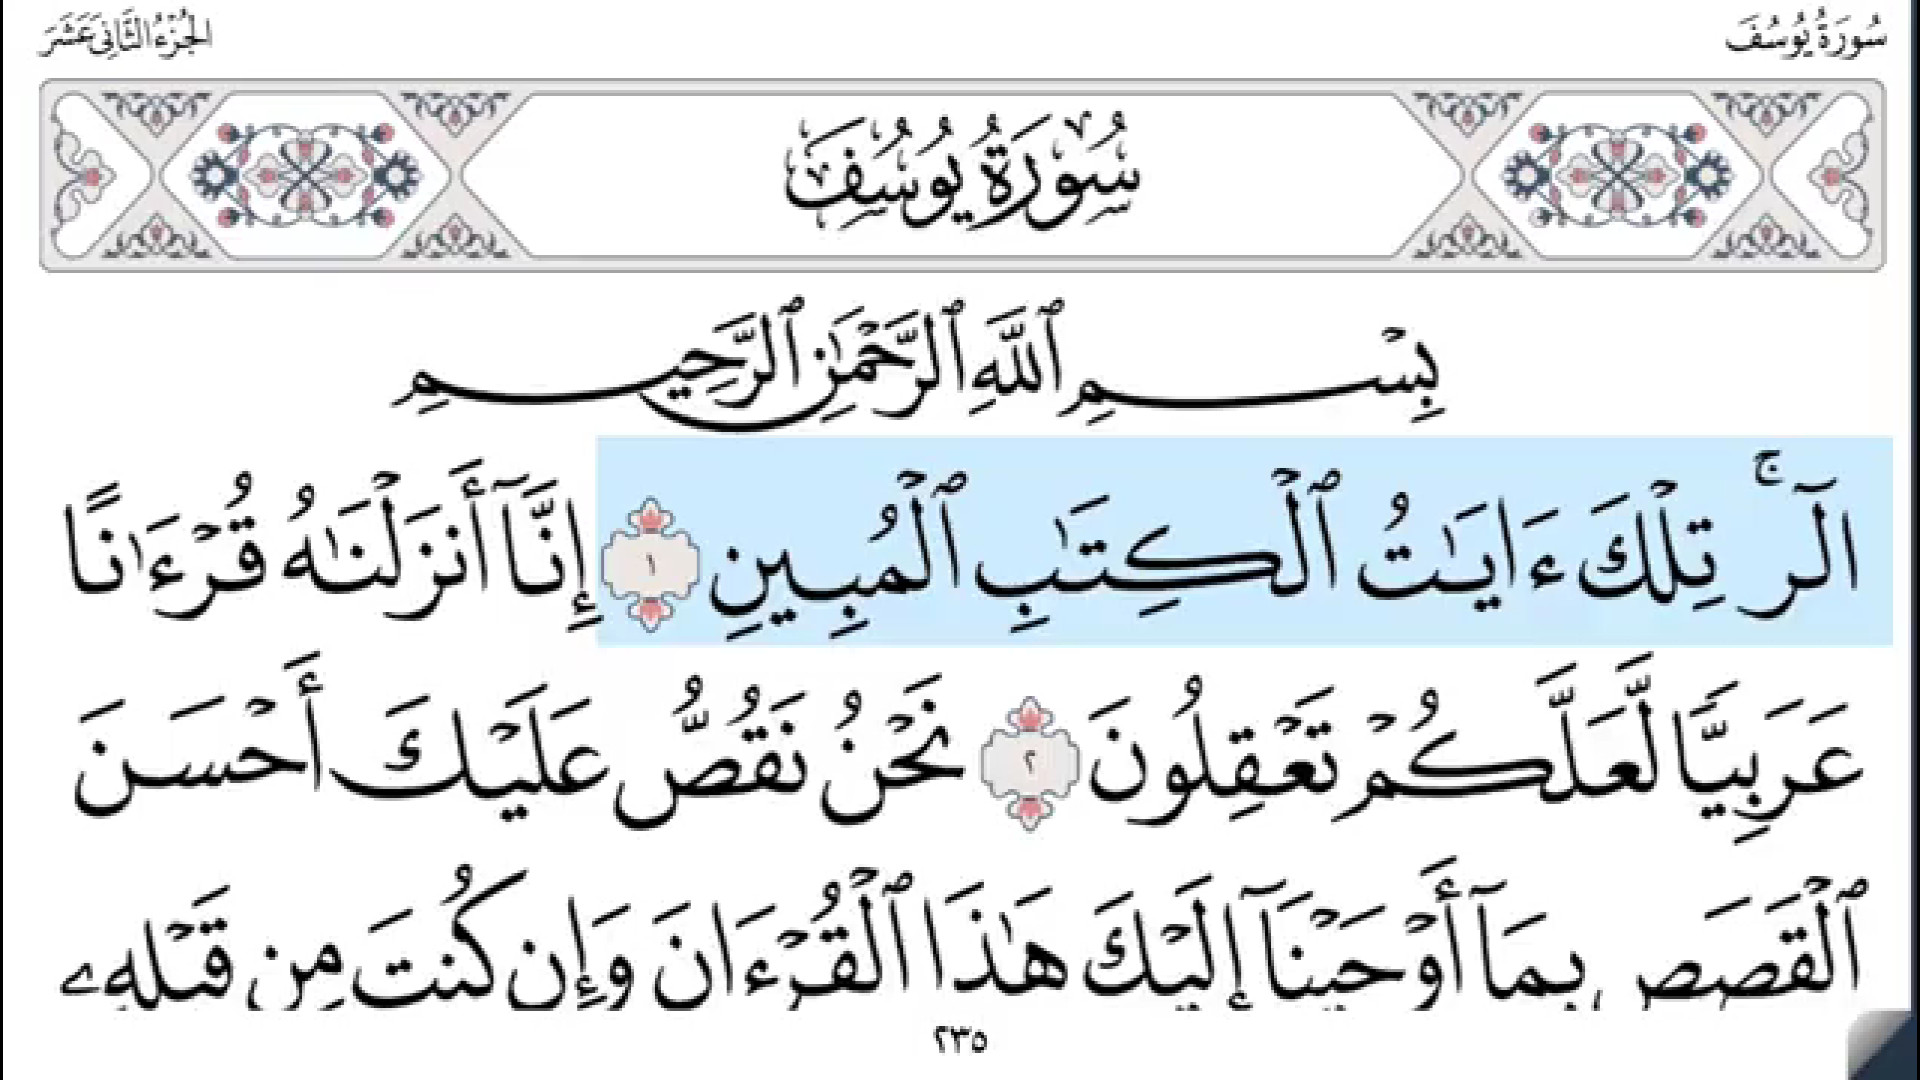 سُورَةُ يُوسُفَ
الجُزْءُ الثَّانِي عَشَرَ
سُورَةُ يُوسُفَ
بِسْمِ ٱللَّهِ ٱلرَّحْمَٰنِ ٱلرَّحِيمِ
الٓرۚ تِلْكَ ءَايَٰتُ ٱلْكِتَٰبِ ٱلْمُبِينِ ١ إِنَّآ أَنزَلْنَٰهُ قُرْءَٰنًا
عَرَبِيًّا لَّعَلَّكُمْ تَعْقِلُونَ ٢ نَحْنُ نَقُصُّ عَلَيْكَ أَحْسَنَ
ٱلْقَصَصِ بِمَآ أَوْحَيْنَآ إِلَيْكَ هَٰذَا ٱلْقُرْءَانَ وَإِن كُنتَ مِن قَبْلِهِۦ
٢٣٥